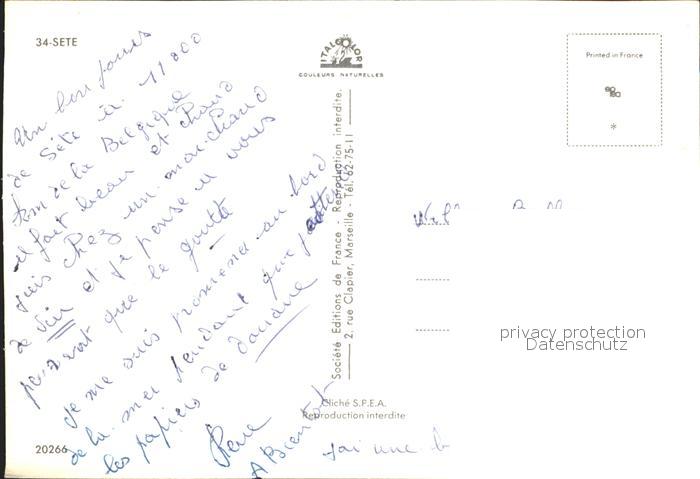 34-SETE
Un bon jours
de Sète à 11 000
km de la Belgique
il fait beau et chaud
suis chez un marchand
de vin et je pense à vous
pourvu que le goutte
Je me suis promené au bord
de la mer pendant que j'attends
les papiers de douane
Pierre
A Bientot
J'ai une b
20266
ITALCOLOR
COULEURS NATURELLES
Société Editions de France - Reproduction interdite.
2, rue Clapier, Marseille - Tél. 62-75-11
Cliché S.P.E.A.
Reproduction interdite
Printed in France
*
privacy protection
Datenschutz